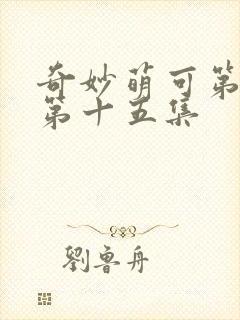 奇妙萌可第
第十五集
劉魯舟